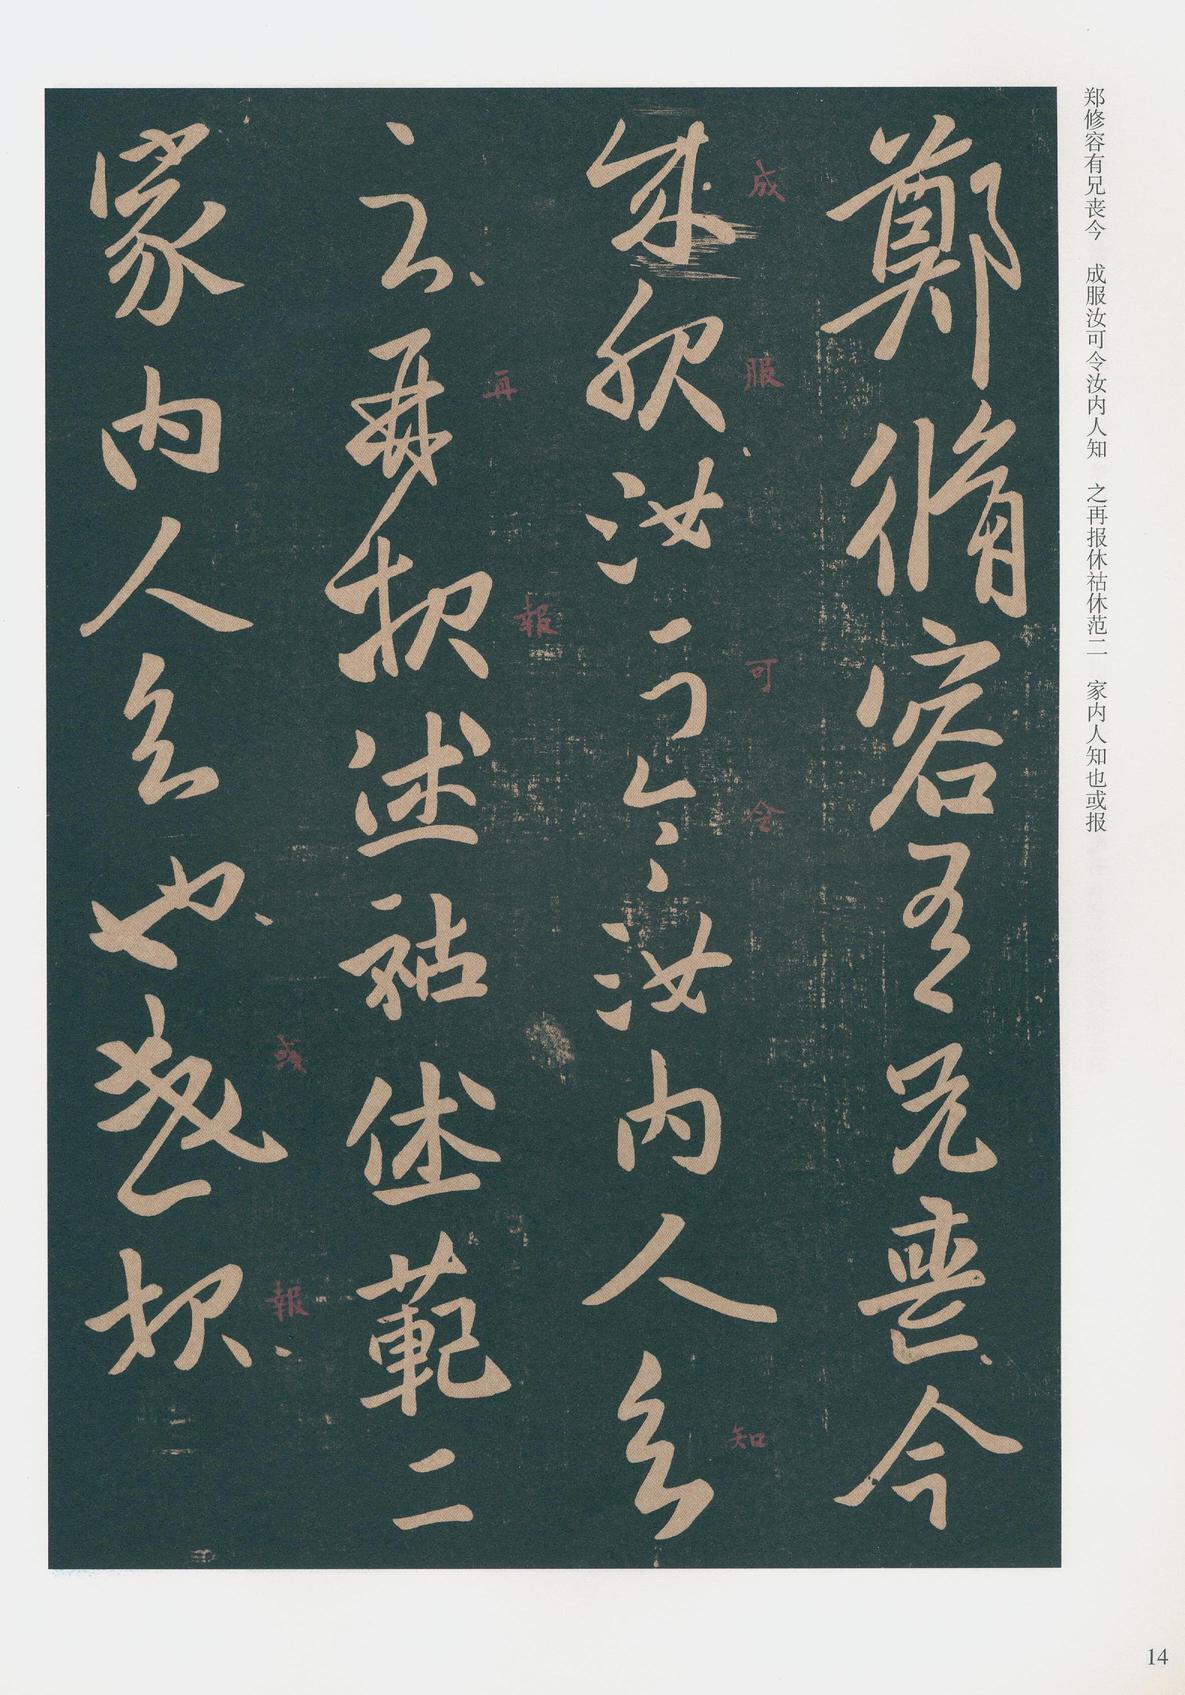 郑修容有兄丧今　成服汝可令汝内人知　之再报休祜休范二　家内人知也或报
鄭脩容有兄喪今
成服汝可令汝内人知
之再报休祜休範二
家内人知也或报
成
服
可
令
知
再
報
或
報
14